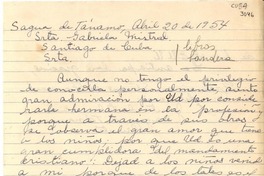 CUBA
3046
Sagua de Tánamo, Abril 20 de 1954
Srta Gabriela Mistral
Santiago de Cuba / libros
Srta. / bandera
Aunque no tengo el privilegio
de conocerla personalmente, siento
gran admiración por Ud por conside
rarla hermana en la profesión
y porque a través de sus obras
se observa el gran amor que tiene
a los niños, por que Ud es una
gran cumplidora del mandamiento
cristiano: "Dejad a los niños venid
a mí porque de los tales es el